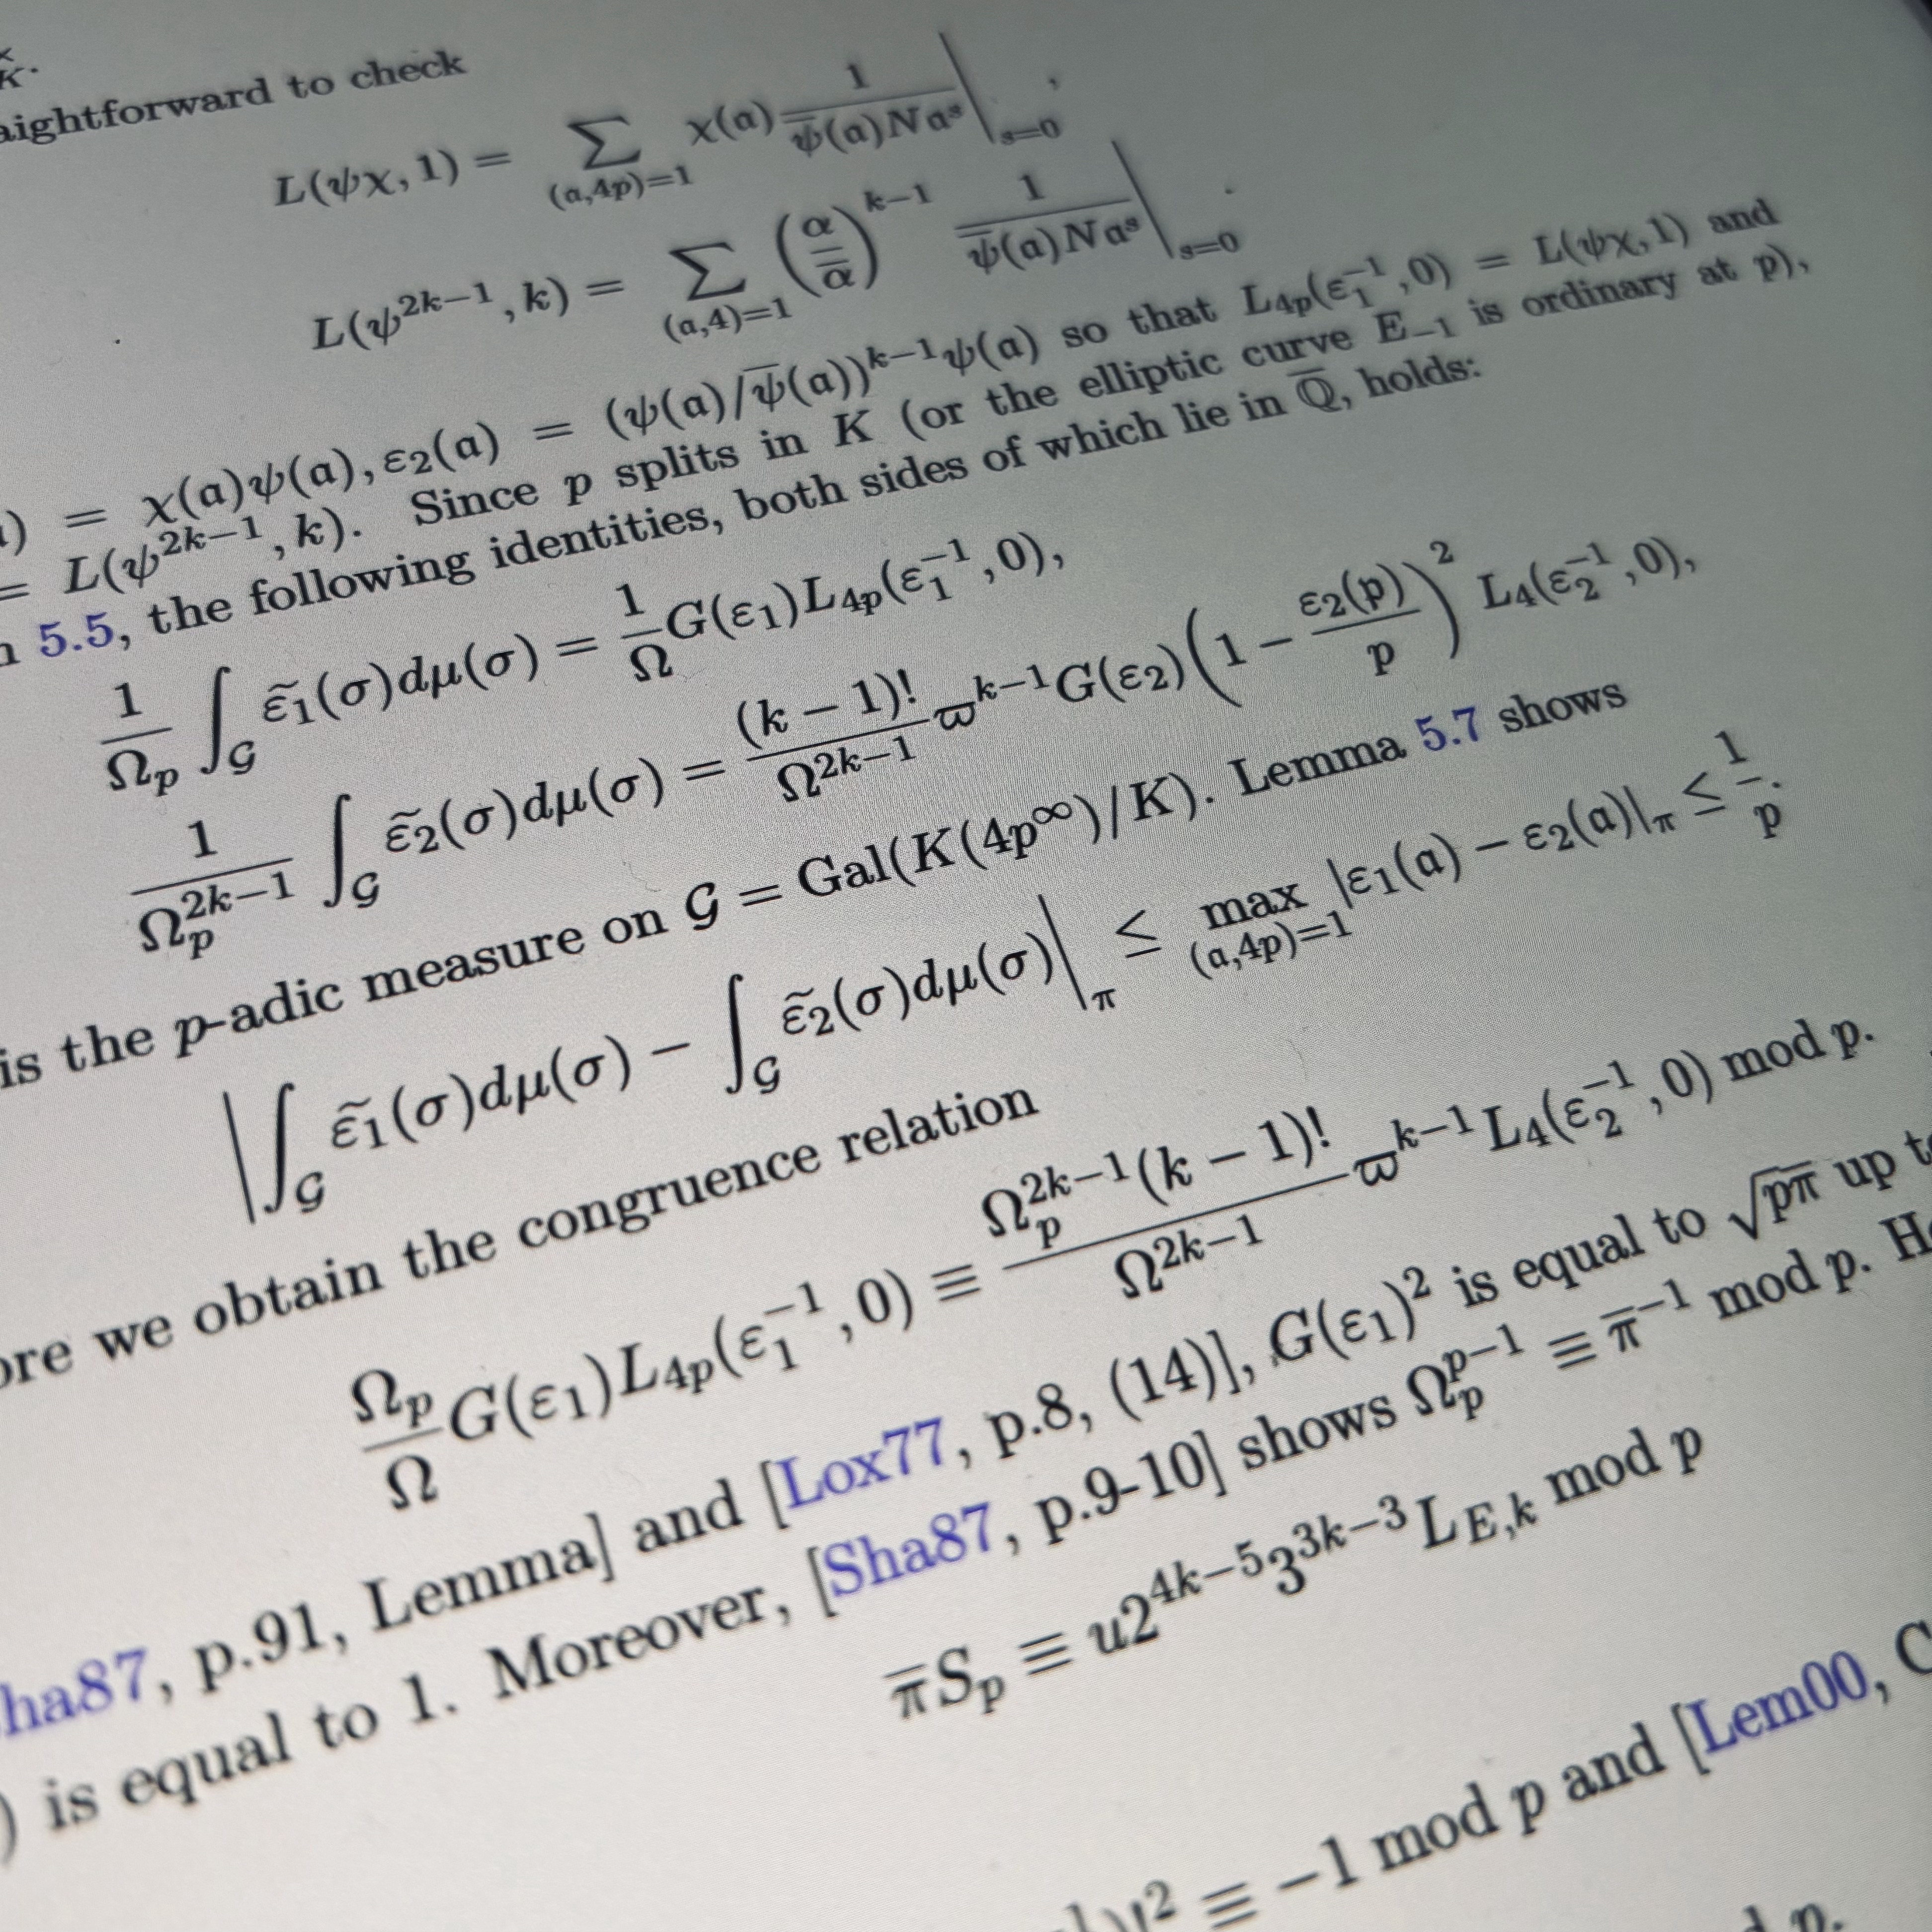 K^×.
aightforward to check
L(ψχ, 1) = ∑_{(𝔞,4p)=1} χ(𝔞) 1/(ψ̄(𝔞)N𝔞^s) |_{s=0},
L(ψ^{2k−1}, k) = ∑_{(𝔞,4)=1} (α/ᾱ)^{k−1} 1/(ψ̄(𝔞)N𝔞^s) |_{s=0}.
) = χ(𝔞)ψ(𝔞), ε₂(𝔞) = (ψ(𝔞)/ψ̄(𝔞))^{k−1}ψ(𝔞) so that L_{4p}(ε₁^{−1}, 0) = L(ψχ, 1) and
= L(ψ^{2k−1}, k). Since p splits in K (or the elliptic curve E_{−1} is ordinary at p),
5.5, the following identities, both sides of which lie in Q̄, holds:
1/Ω_p ∫_𝒢 ε̃₁(σ)dμ(σ) = 1/Ω G(ε₁)L_{4p}(ε₁^{−1}, 0),
1/Ω_p^{2k−1} ∫_𝒢 ε̃₂(σ)dμ(σ) = (k − 1)!/Ω^{2k−1} ϖ^{k−1}G(ε₂)(1 − ε₂(𝔭)/p)² L₄(ε₂^{−1}, 0),
is the p-adic measure on 𝒢 = Gal(K(4p^∞)/K). Lemma 5.7 shows
|∫_𝒢 ε̃₁(σ)dμ(σ) − ∫_𝒢 ε̃₂(σ)dμ(σ)|_π ≤ max_{(𝔞,4p)=1} |ε₁(𝔞) − ε₂(𝔞)|_π ≤ 1/p.
ore we obtain the congruence relation
Ω_p/Ω G(ε₁)L_{4p}(ε₁^{−1}, 0) ≡ Ω_p^{2k−1}(k − 1)!/Ω^{2k−1} ϖ^{k−1}L₄(ε₂^{−1}, 0) mod 𝔭.
ha87, p.91, Lemma] and [Lox77, p.8, (14)], G(ε₁)² is equal to √pπ̄ up t
) is equal to 1. Moreover, [Sha87, p.9-10] shows Ω_p^{p−1} ≡ π̄^{−1} mod 𝔭. H
π̄S_p ≡ u2^{4k−5}3^{3k−3}L_{E,k} mod 𝔭
)!² ≡ −1 mod p and [Lem00, C
p.